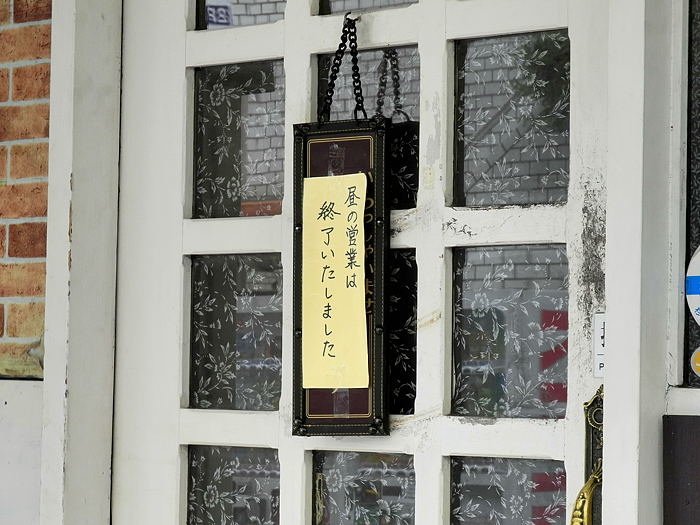 昼の営業は
終了いたしました